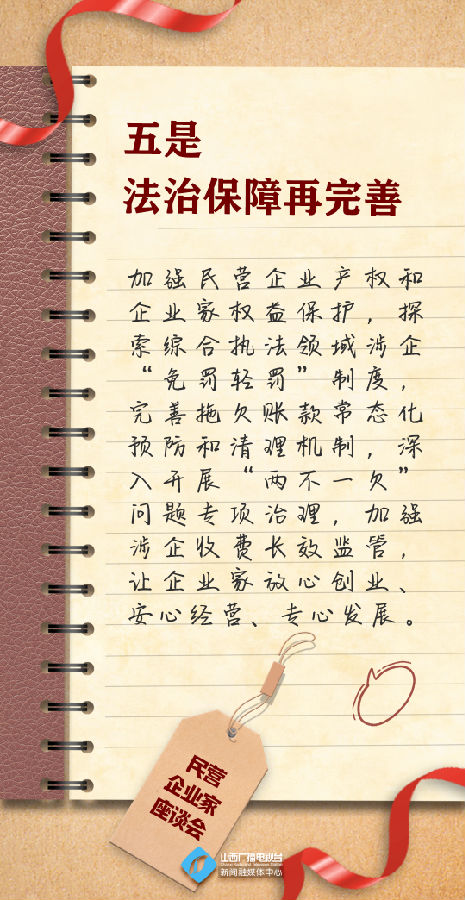 五是
法治保障再完善
加强民营企业产权和
企业家权益保护，探
索综合执法领域涉企
“免罚轻罚”制度，
完善拖欠账款常态化
预防和清理机制，深
入开展“两不一欠”
问题专项治理，加强
涉企收费长效监管，
让企业家放心创业、
安心经营、专心发展。
民营
企业家
座谈会
山西广播电视台
新闻融媒体中心